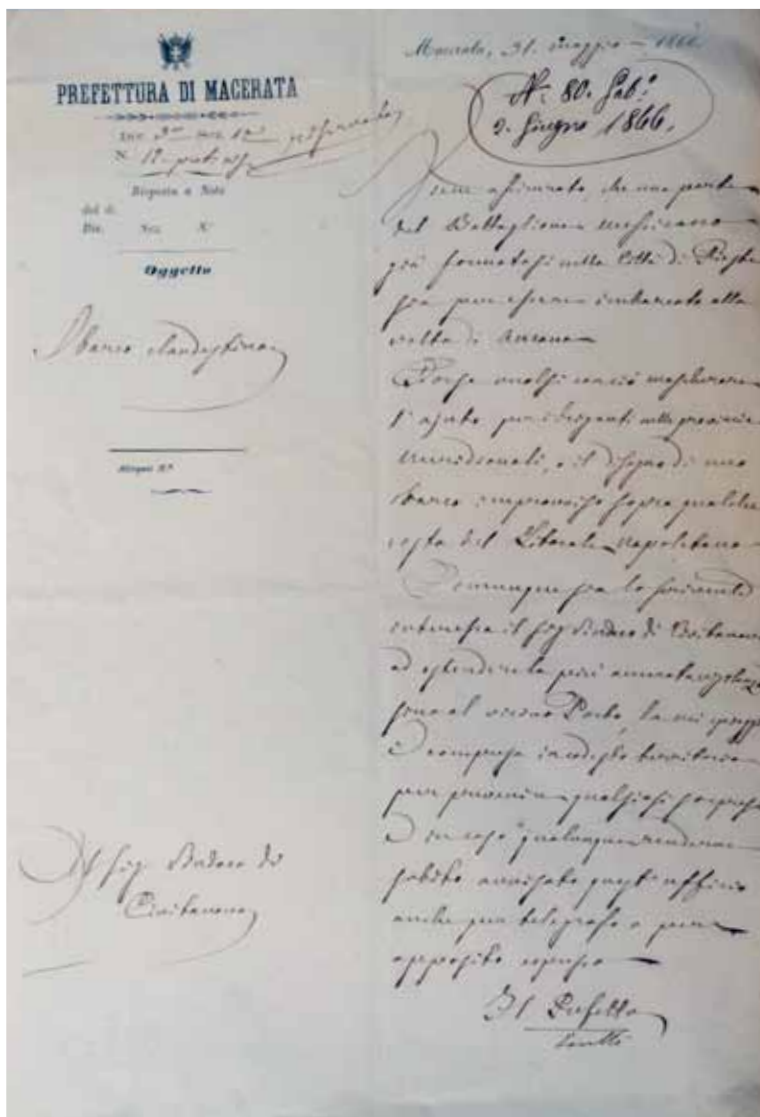 PREFETTURA DI MACERATA
Div. Sez.
N.
Risposta a Nota
del dì
Div. Sez. N.º
Oggetto
Sbarco clandestino
Allegati N.º
Al Sig. Sindaco di
Civitanova
Macerata, 31. Maggio 1866
N.º 80. Gab.º
2. Giugno 1866.
Viene assicurato, che una parte
del Battaglione messicano
già formatosi nella Città di Trieste
sia per essere imbarcata alla
volta di Ancona
Forse vuolsi con ciò mascherare
l'ajuto pei briganti nelle provincie
meridionali, o il disegno di uno
sbarco improvviso sopra qualche
costa del Litorale napoletano
Comunque sia lo scrivente
interessa il Sig. Sindaco di Civitanova
ad estendere la più accurata vigilanza
sino al vicino Porto, la cui spiaggia
è compresa in codesto territorio
per prevenire qualsiasi sorpresa
E in caso qualunque rendere
subito avvisato quest'uffizio
anche per telegrafo o per
apposito espresso
Il Prefetto